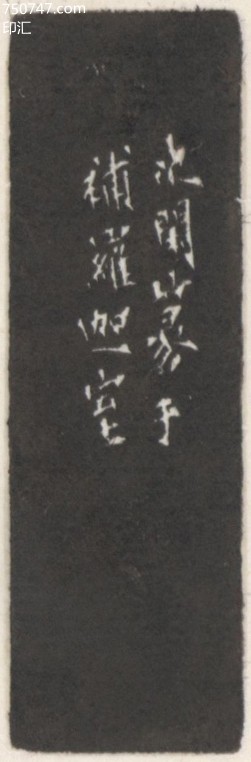 750747.com
印汇
次閑篆于
補羅迦室